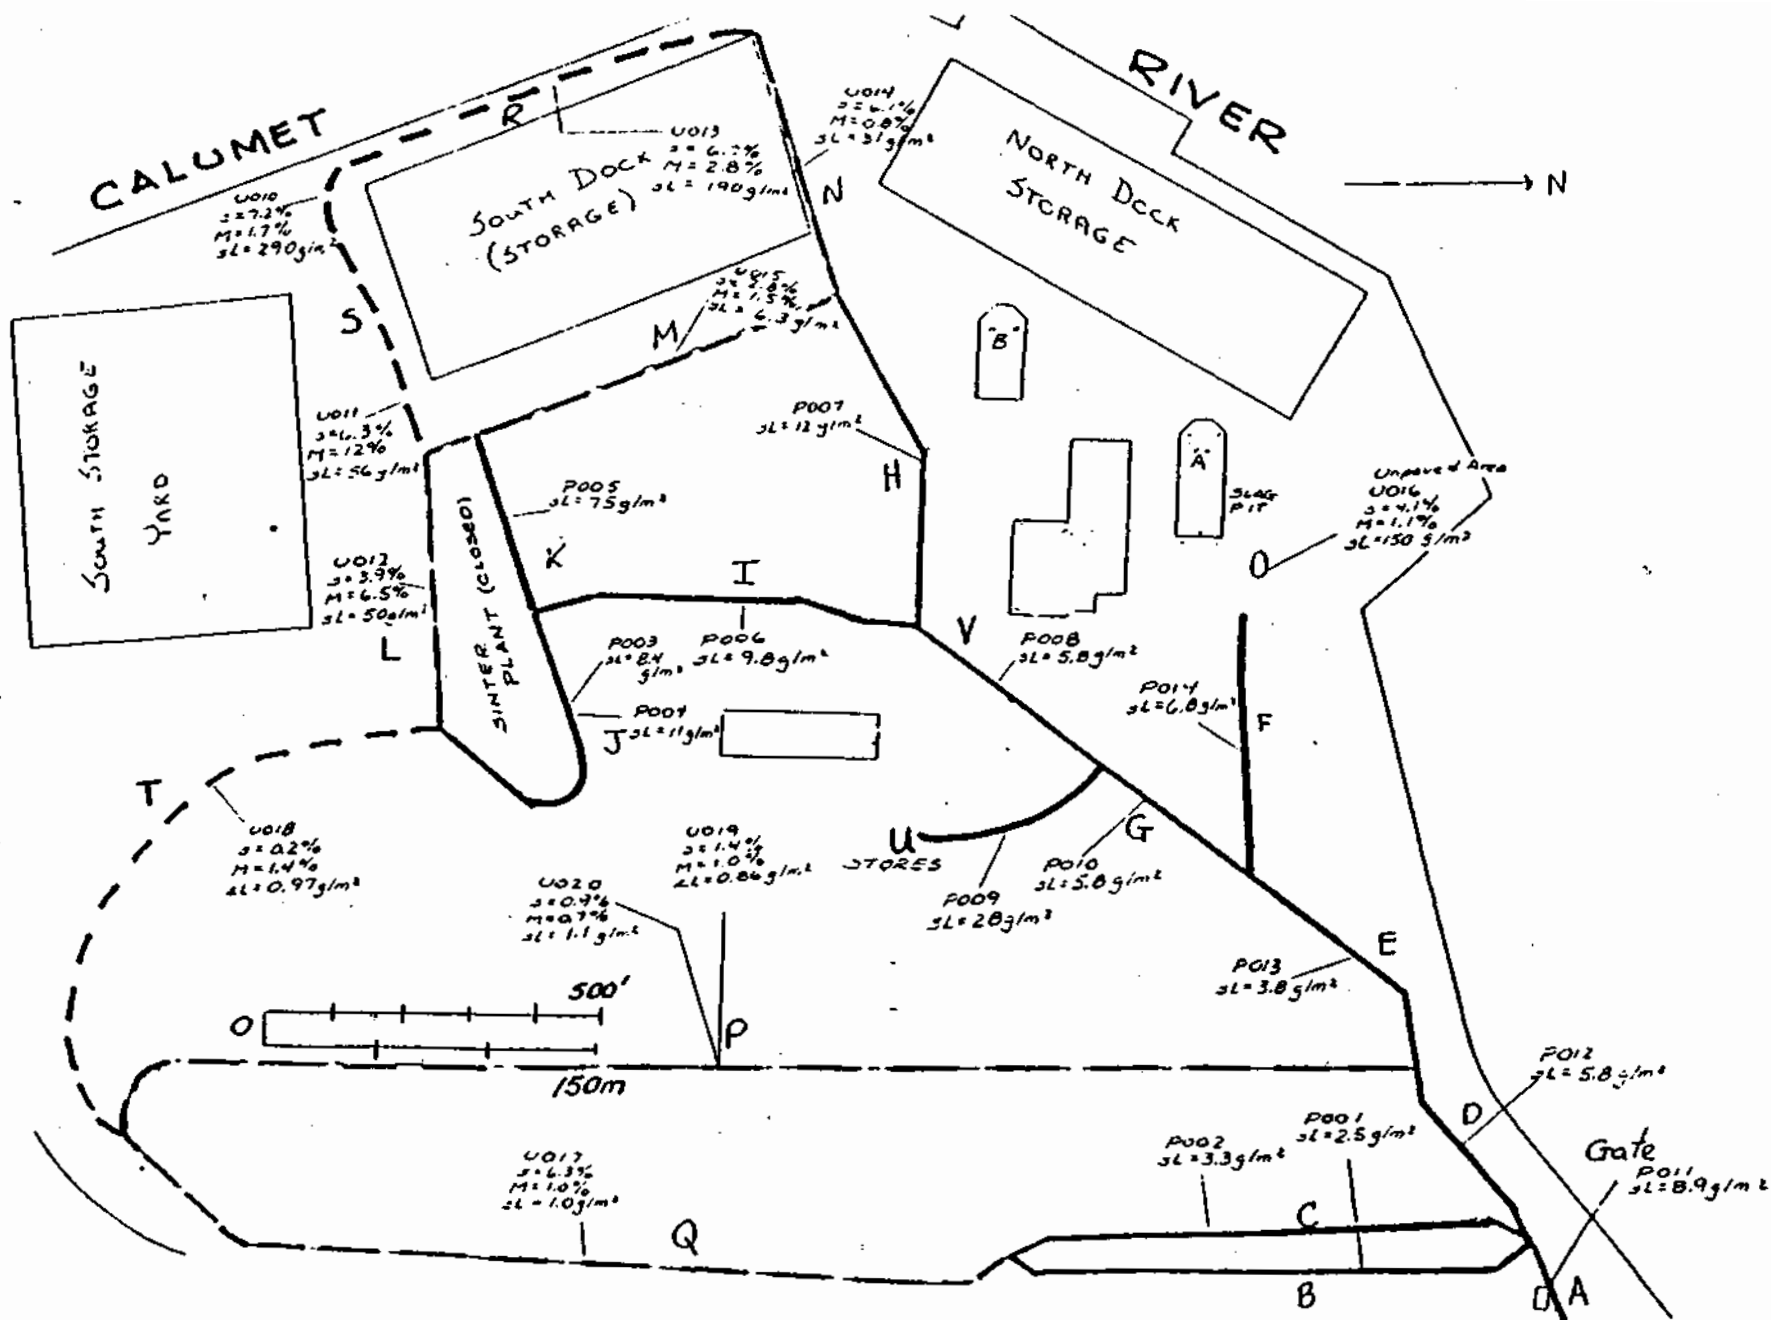 CALUMET
RIVER
N
R
U013
M=2.8%
sL=190g/m²
U014
s=6.1%
M=0.8%
sL=31g/m²
N
SOUTH DOCK
(STORAGE)
NORTH DOCK
STORAGE
U010
s=7.2%
M=1.7%
sL=290g/m²
S
M
U015
s=2.8%
M=1.5%
sL=6.3g/m²
B
SOUTH STORAGE
YARD
U011
s=6.3%
M=12%
sL=56g/m²
P007
sL=12g/m²
H
A
SLAG
PIT
Unpaved Area
U016
s=4.1%
M=1.1%
sL=150g/m²
O
P005
sL=75g/m²
K
I
SINTER
PLANT (CLOSED)
U012
s=3.9%
M=6.5%
sL=50g/m²
L
P003
sL=8.4
g/m²
P006
sL=9.8g/m²
V
P008
sL=5.8g/m²
P004
sL=11g/m²
J
P014
sL=6.8g/m²
F
T
U018
s=0.2%
M=1.4%
sL=0.97g/m²
U019
s=1.4%
M=1.0%
sL=0.86g/m²
U
STORES
G
P010
sL=5.8g/m²
P009
sL=28g/m²
U020
sL=1.1g/m²
E
P013
sL=3.8g/m²
500'
O
150m
P
P012
sL=5.8g/m²
D
P001
sL=2.5g/m²
P002
sL=3.3g/m²
Gate
P011
sL=8.9g/m²
U017
s=6.3%
M=1.0%
sL=1.0g/m²
Q
C
B
A